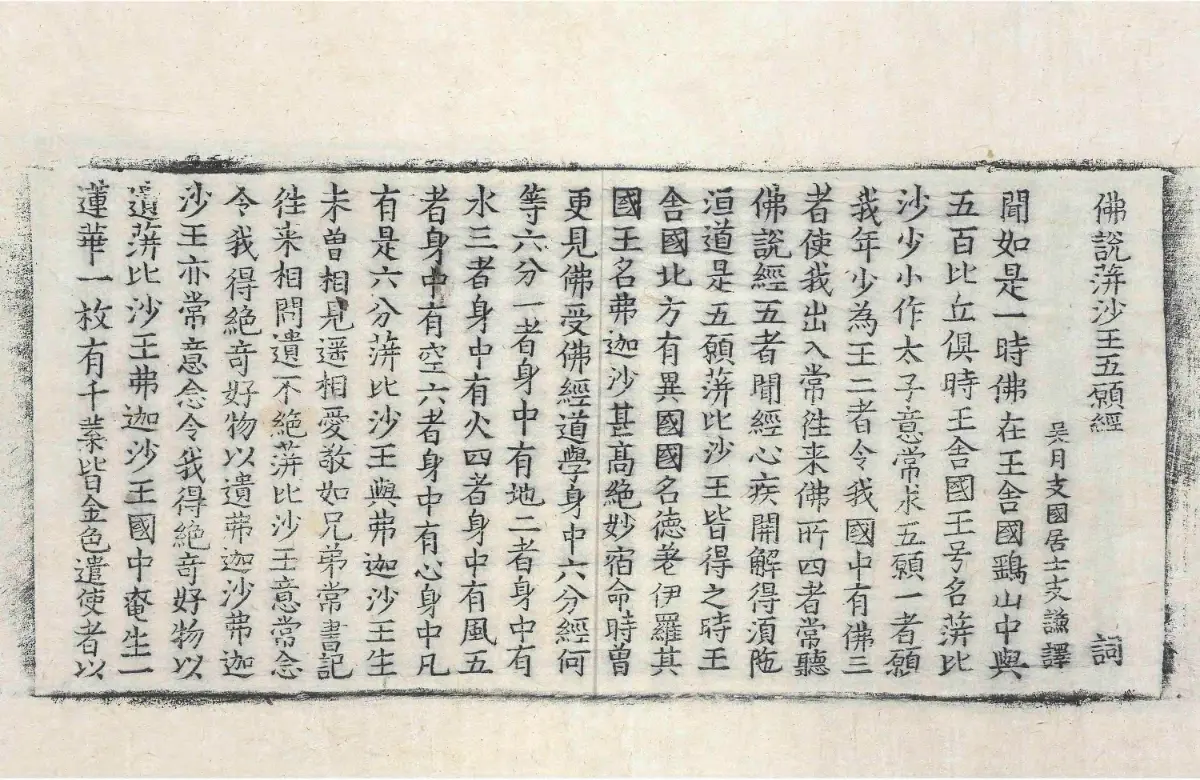 佛說蓱沙王五願經 詞
吴月支國居士支謙譯
聞如是一時佛在王舍國鷄山中與
五百比丘俱時王舍國王号名蓱比
沙少小作太子意常求五願一者願
我年少為王二者令我國中有佛三
者使我出入常徃来佛所四者常聽
佛說經五者聞經心疾開解得湏陁
洹道是五願蓱比沙王皆得之時王
舍國北方有異國國名德差伊羅其
國王名弗迦沙甚髙絶妙宿命時曽
更見佛受佛經道學身中六分經何
等六分一者身中有地二者身中有
水三者身中有火四者身中有風五
者身中有空六者身中有心身中凡
有是六分蓱比沙王與弗迦沙王生
未曽相見遥相愛敬如兄弟常書記
徃来相問遺不絶蓱比沙王意常念
令我得絶竒好物以遺弗迦沙弗迦
沙王亦常意念令我得絶竒好物以
遺蓱比沙王弗迦沙王國中奄生一
蓮華一枚有千葉皆金色遣使者以